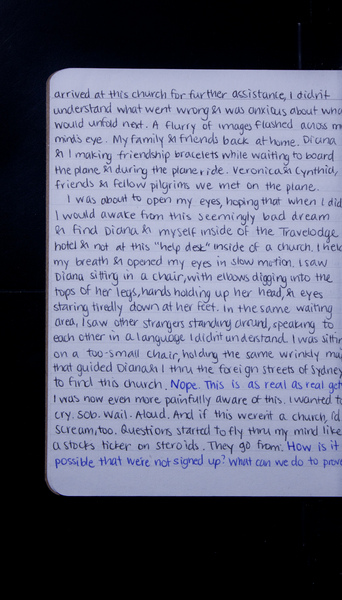 arrived at this church for further assistance, I didn't
understand what went wrong & was anxious about wha
would unfold next. A flurry of images flashed across m
mind's eye. My family & friends back at home. Diana
& I making friendship bracelets while waiting to board
the plane & during the plane ride. Veronica & Cynthia,
friends & fellow pilgrims we met on the plane.
I was about to open my eyes, hoping that when I did
I would awake from this seemingly bad dream
& find Diana & myself inside of the Travelodge
hotel & not at this "help desk" inside of a church. I held
my breath & opened my eyes in slow motion. I saw
Diana sitting in a chair, with elbows digging into the
tops of her legs, hands holding up her head, & eyes
staring tiredly down at her feet. In the same waiting
area, I saw other strangers standing around, speaking to
each other in a language I didn't understand. I was sittin
on a too-small chair, holding the same wrinkly ma
that guided Diana & I thru the foreign streets of Sydney
to find this church. Nope. This is as real as real get
I was now even more painfully aware of this. I wanted to
cry. Sob. Wail. Aloud. And if this weren't a church, I'd
scream, too. Questions started to fly thru my mind like
a stocks ticker on steroids. They go from: How is it
possible that we're not signed up? What can we do to prove